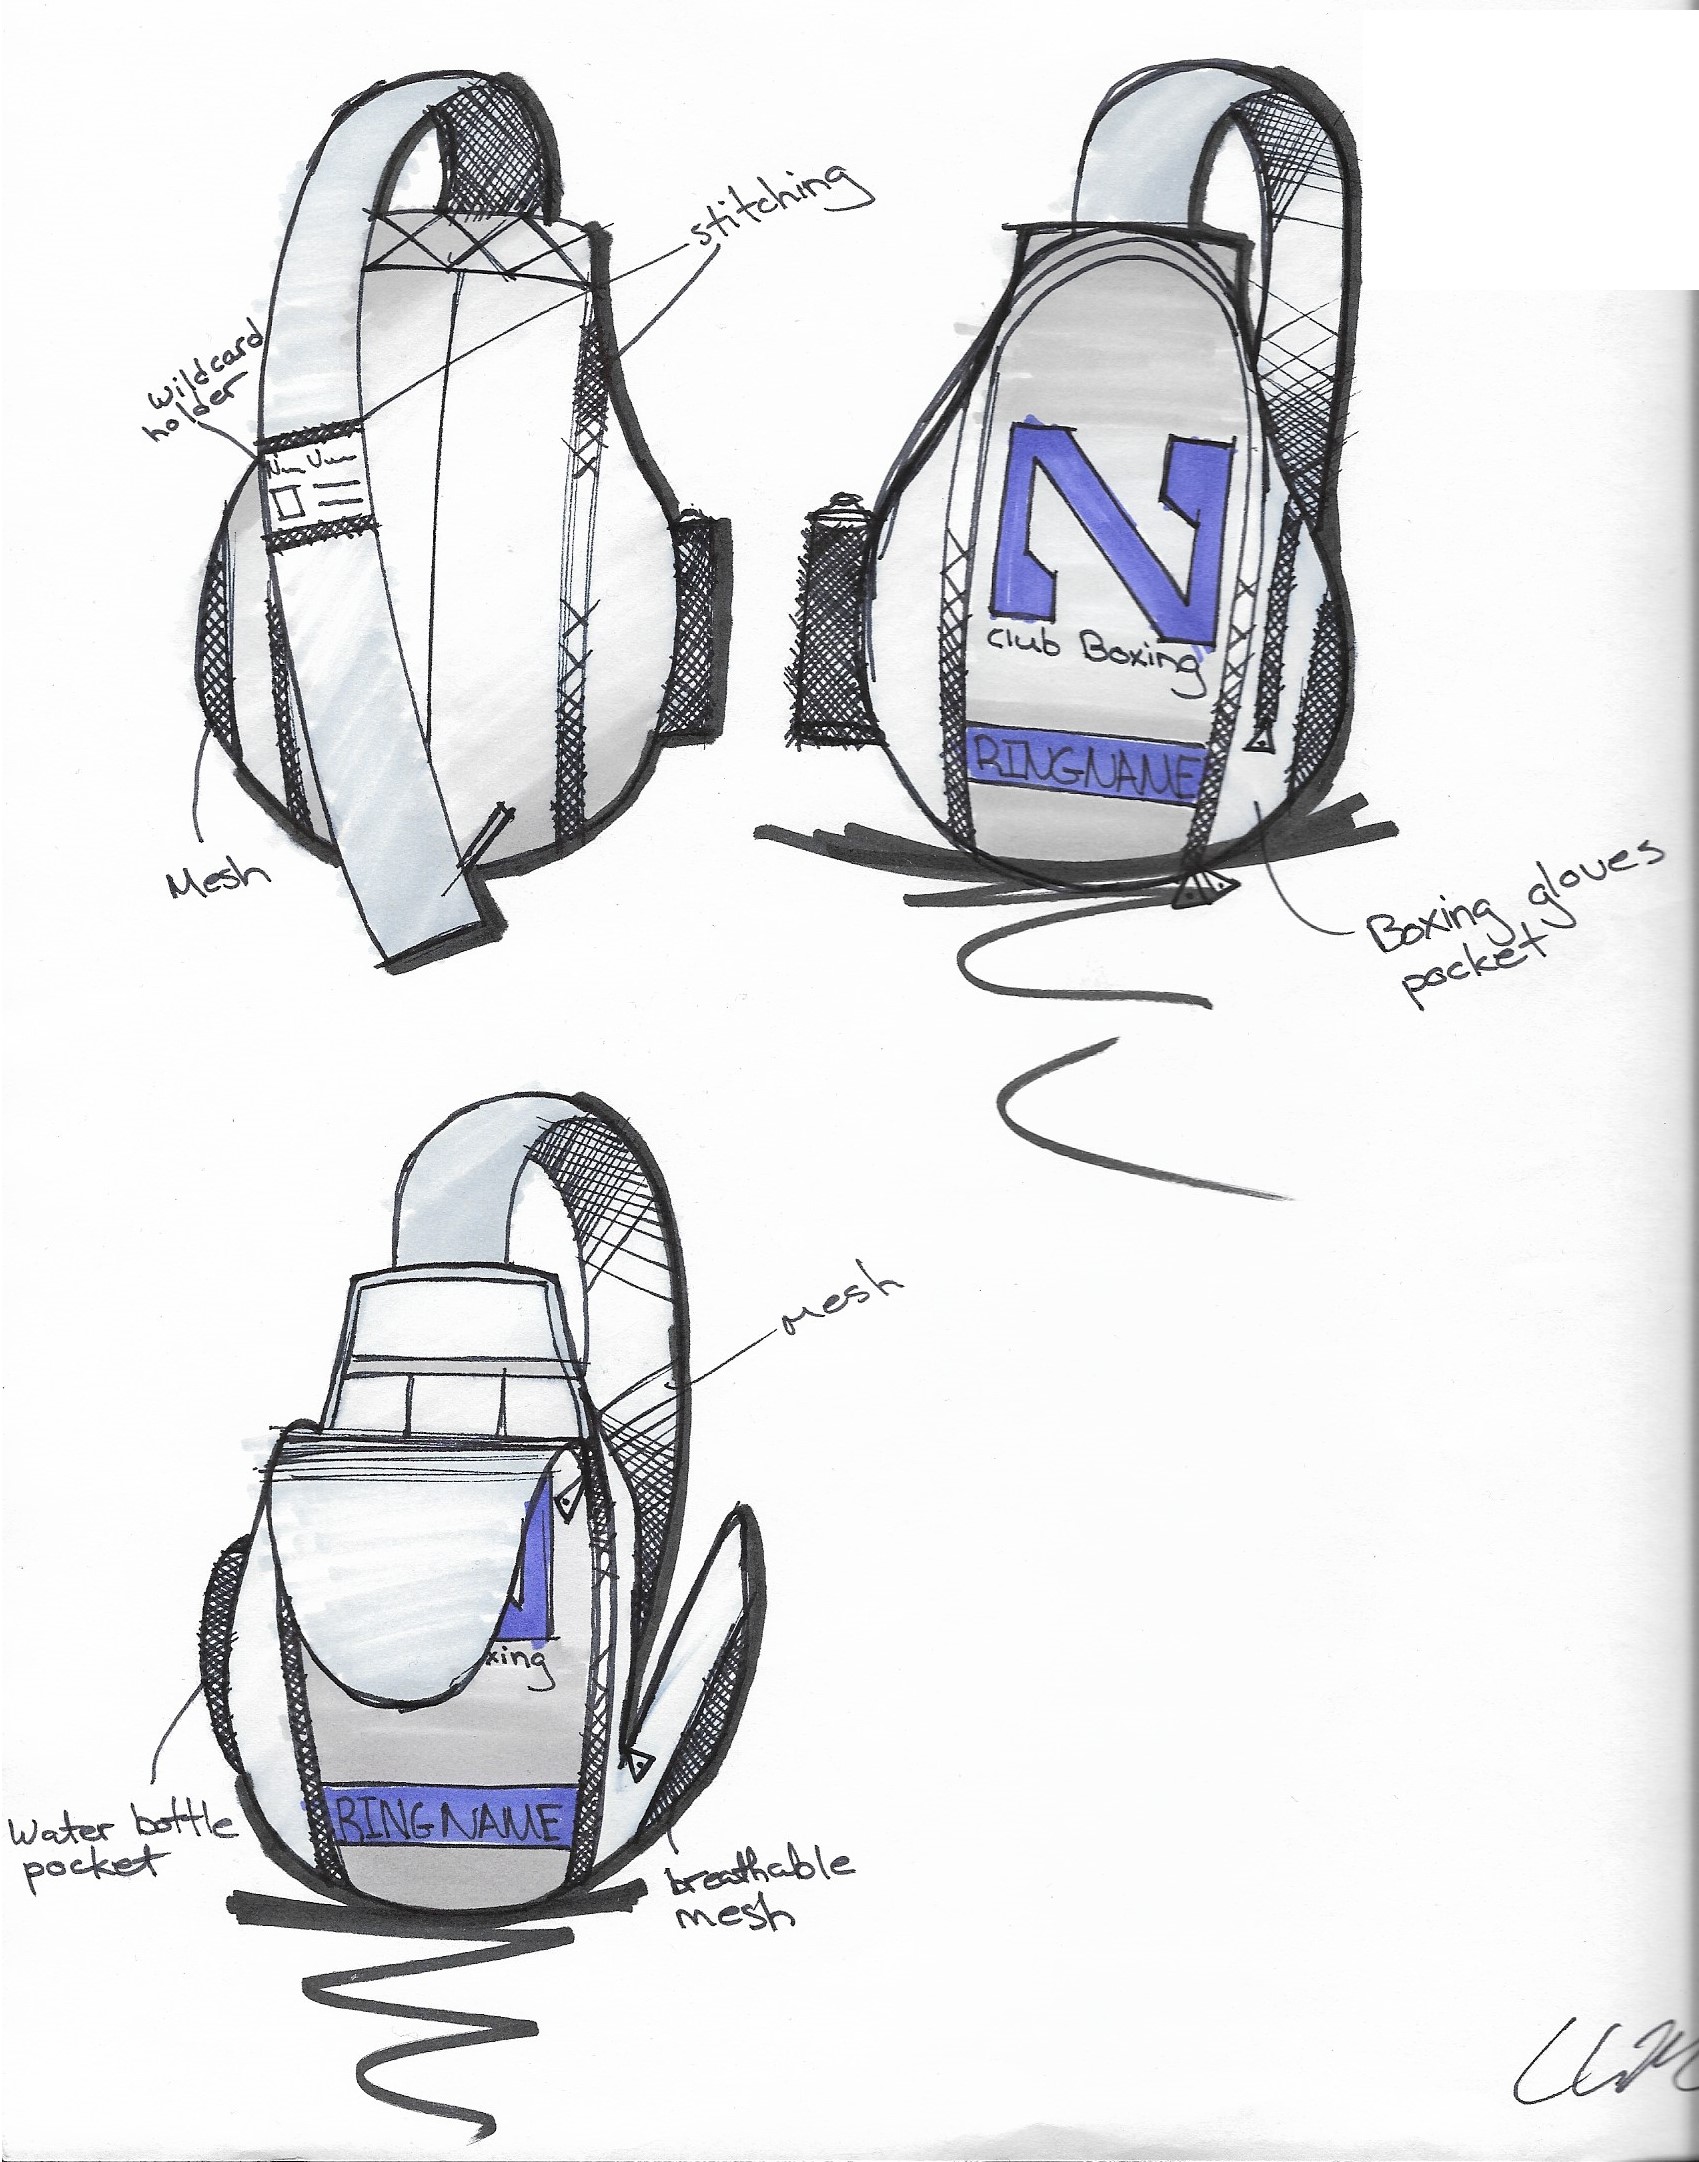 stitching
Wildcard
holder
Mesh
N
Club Boxing
RINGNAME
Boxing gloves
pocket
mesh
xing
RINGNAME
Water bottle
pocket
breathable
mesh